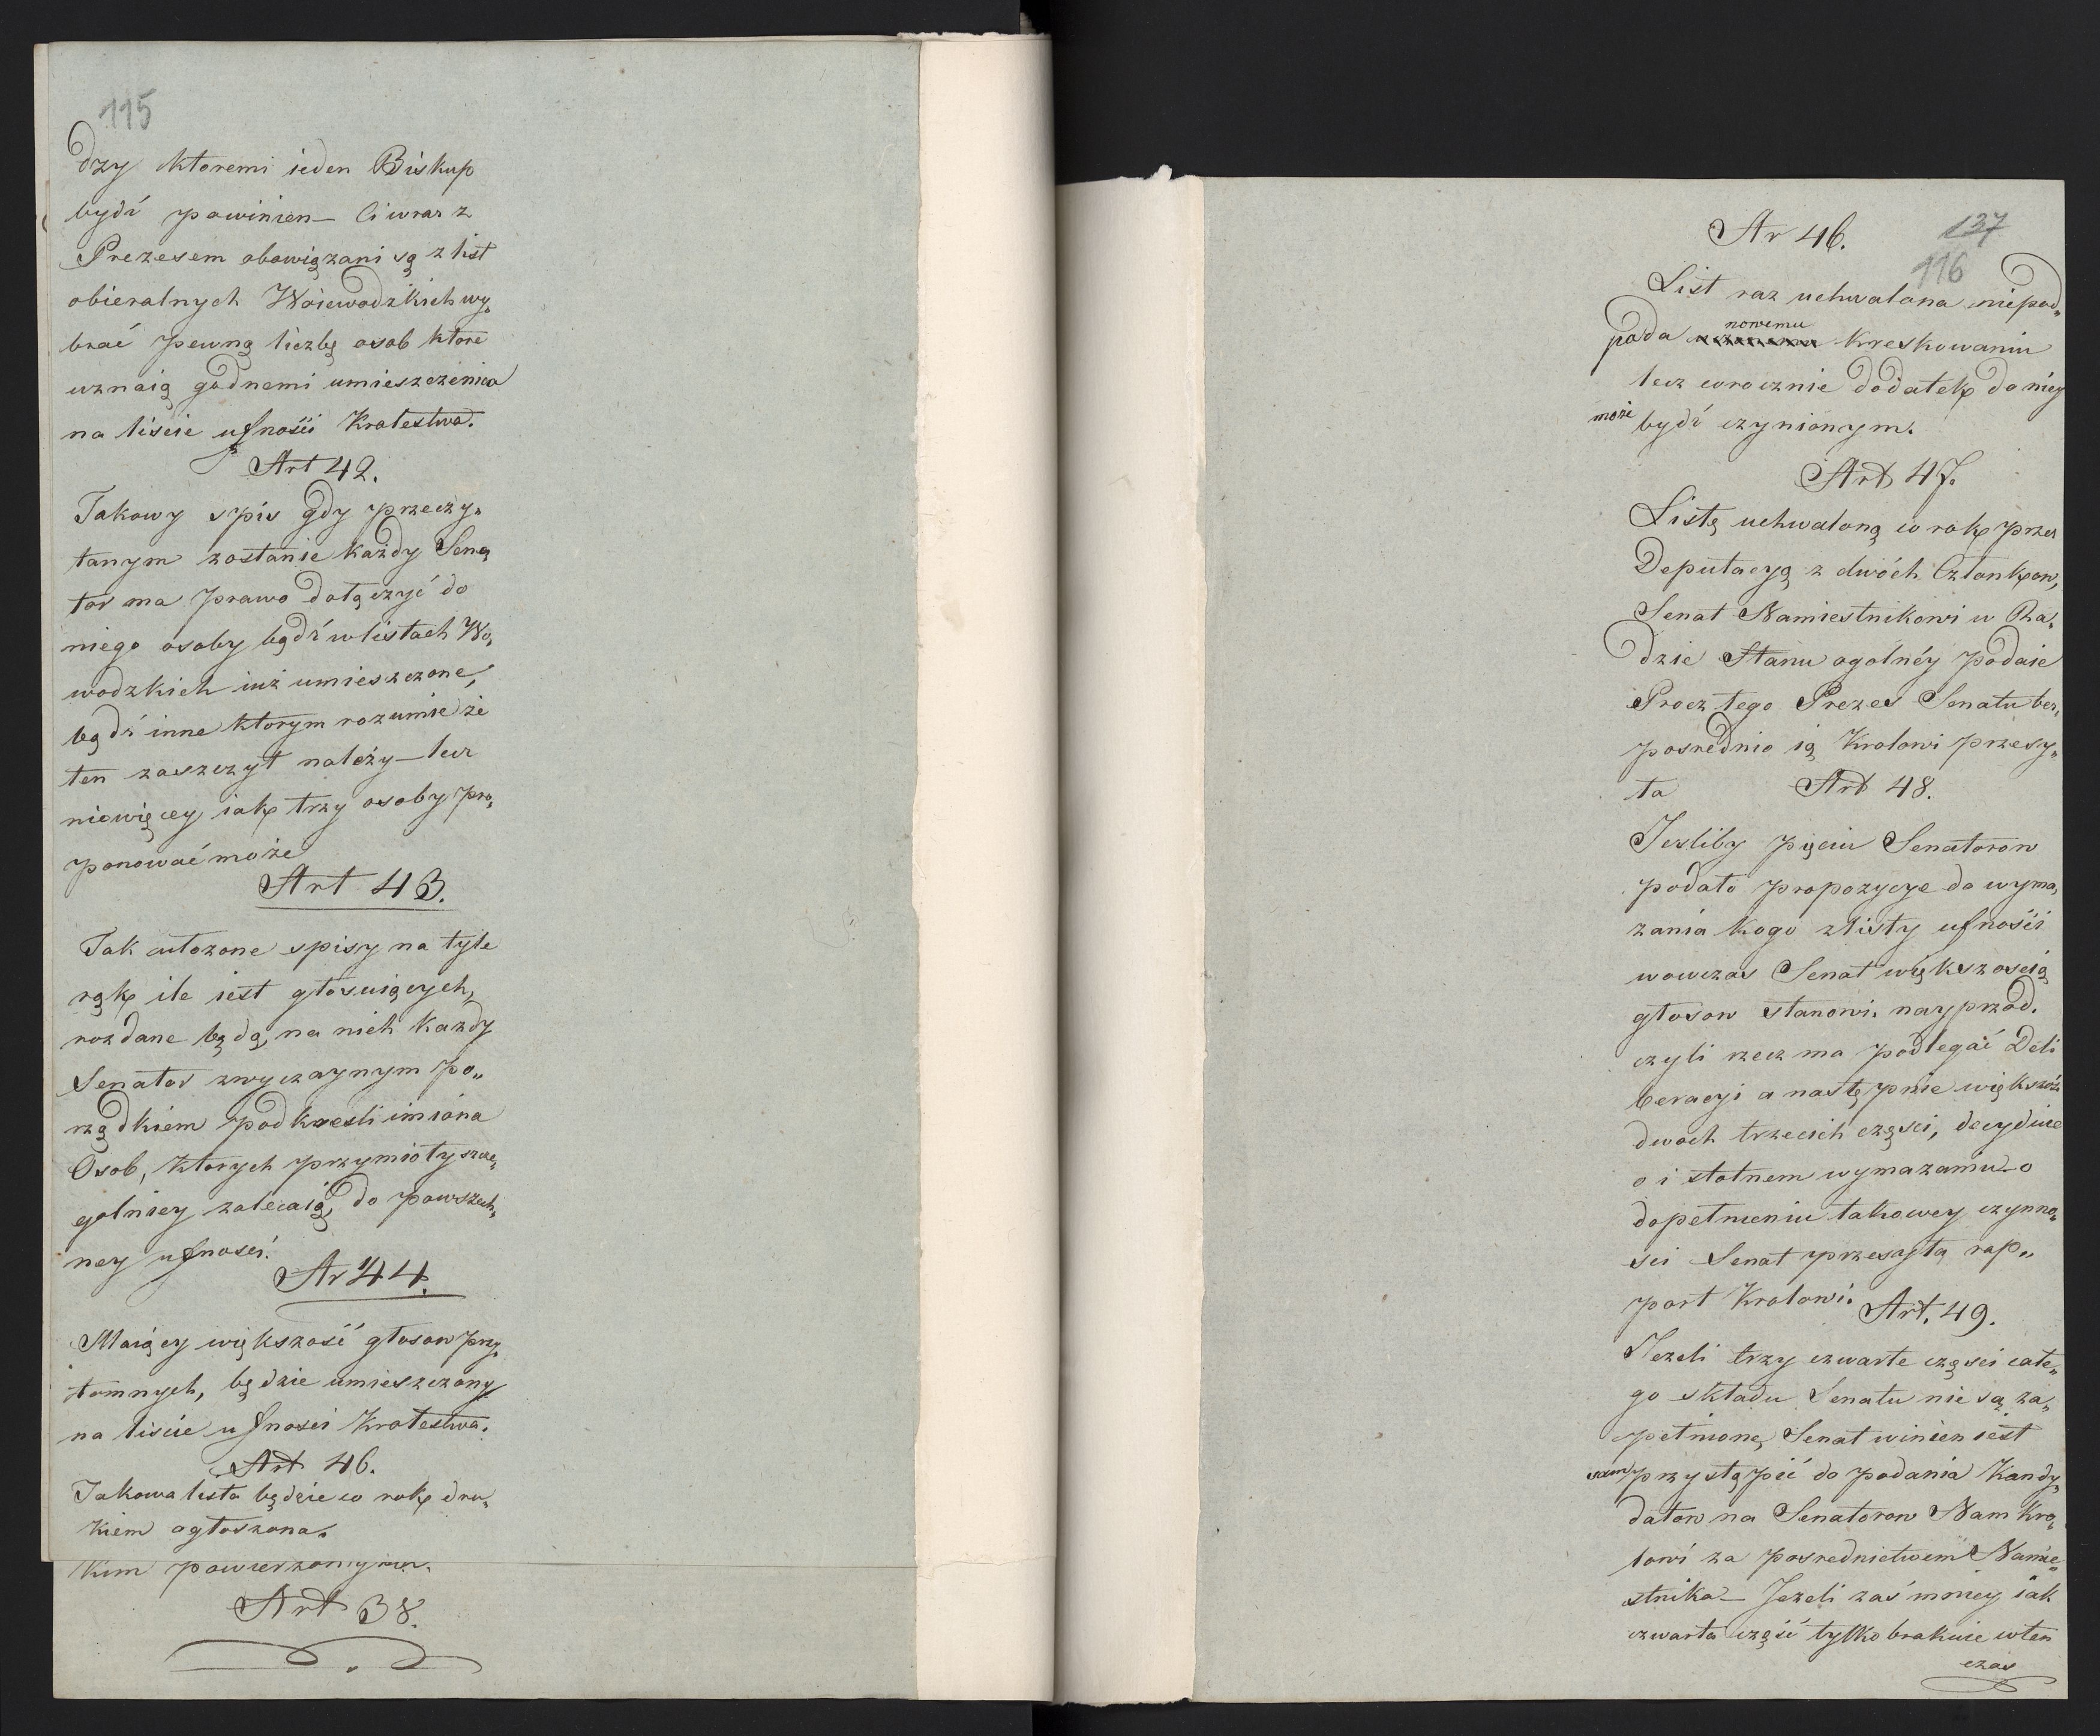 115
dzy ktoremi ieden Biskup
bydź powinien — Ci wraz z
Prezesem obowiązani są z list
obieralnych Woiewodzkich wy„
brać pewną liczbę osob ktore
uznaią godnemi umieszczenia
na liście ufności Krolestwa.
Art 42.
Takowy spis gdy przeczy„
tanym zostanie każdy Sena
tor ma prawo dołączyć do
niego osoby bądź w listach Wo„
wodzkich iuż umieszczone,
bądź inne ktorym rozumie że
ten zaszczyt należy — lecz
niewięcey iak trzy osoby pro„
ponować może
Art 43.
Tak ułożone spisy na tyle
rąk ile iest głosuiących,
rozdane będą, na nich kazdy
Senator zwyczaynym po„
rządkiem podkresli imiona
Osob, ktorych przymioty szcze„
golniey zalecaią, do powszech„
ney ufnosci.
Ar 44.
Maiący większość głosow przy„
tomnych, będzie umieszczony
na liście ufnosci Krolestwa.
Art 46.
Takowa lista będzie co rok dru„
kiem ogłoszona.
kim powierzonym.
Art 38.
137
116
Ar 46.
List raz uchwalona niepod„
pada nowemu kreskowaniu
lecz corocznie dodatek do niey
może bydź czynionym.
Art 47.
Listę uchwaloną co rok przez
Deputacyą z dwóch Członkow,
Senat Namiestnikowi w Ra„
dzie Stanu ogolnéy podaie
Procz tego Prezes Senatu bez„
posrednio ią Krolowi przesy„
ła
Art 48.
Jesliby pięciu Senatorow
podało propozycye do wyma„
zania kogo z listy ufności
wowczas Senat większoscią
głosow stanowi. nayprzod.
czyli rzecz ma podlegać Deli
beracyi a następnie większość
dwoch trzecich części, decyduie
o istotnem wymazaniu — o
dopełnieniu takowey czynno„
sci Senat przesyła rap„
port Krolowi.
Art. 49.
Jezeli trzy czwarte części całe„
go składu Senatu nie są za„
pełnione, Senat winien iest
sam przystąpić do podania Kandy„
datow na Senatorow Nam Kro„
lowi za posrednictwem Namie„
stnika — Jezeli zaś mniey iak
czwarta część tylko brakuie wten
czas